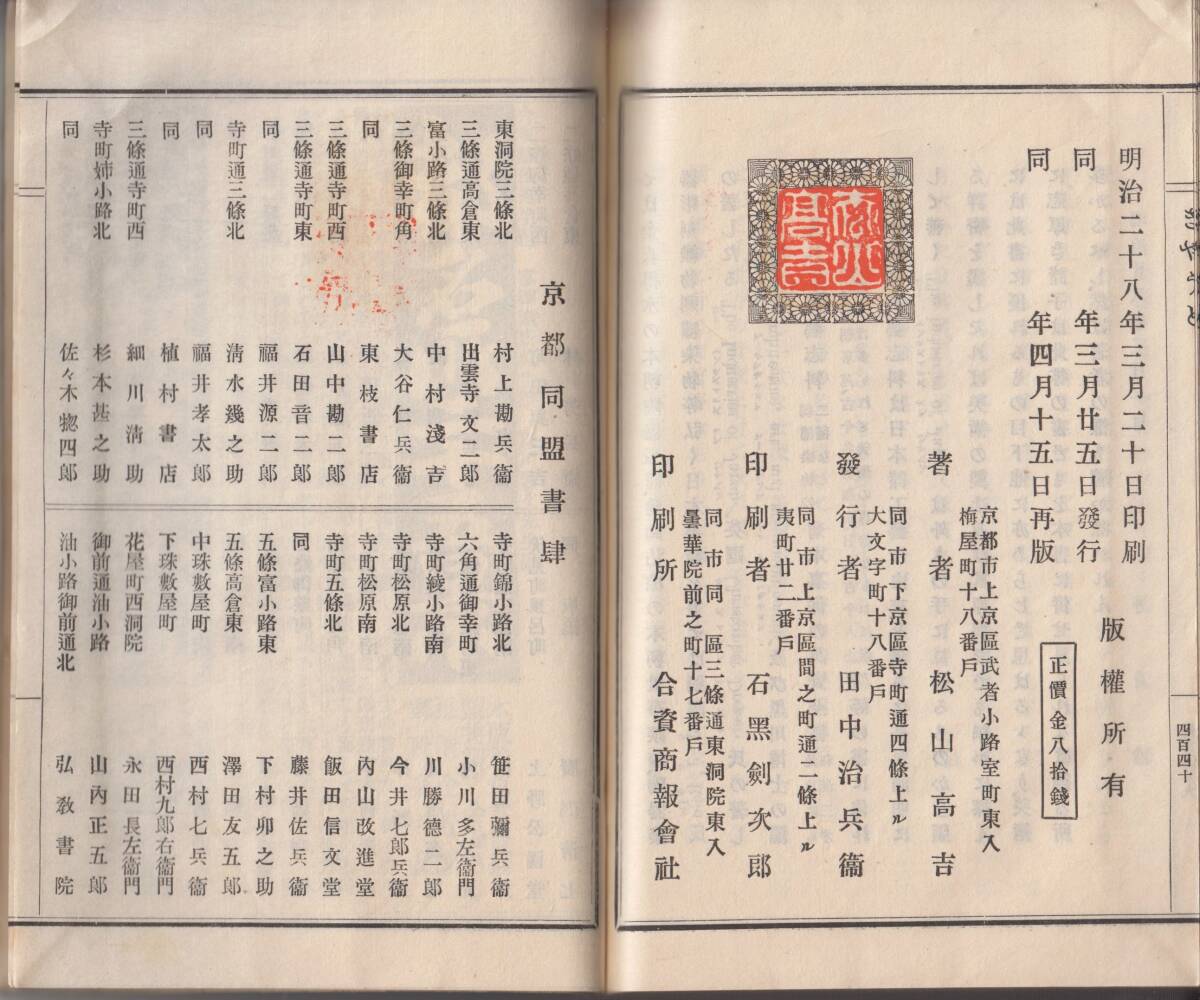 明治二十八年三月二十日印刷
同年三月廿五日發行
同年四月十五日再版
版權所有
正價金八拾錢
京都市上京區武者小路室町東入
梅屋町十八番戶
著者 松山高吉
同市下京區寺町通四條上ル
大文字町十八番戶
發行者 田中治兵衞
同市上京區間之町通二條上ル
夷町廿二番戶
印刷者 石黑劍次郎
同市同區三條通東洞院東入
曇華院前之町十七番戶
印刷所 合資商報會社
松山
高吉
四百四十
京都同盟書肆
東洞院三條北 村上勘兵衞
三條通高倉東 出雲寺文二郎
富小路三條北 中村淺吉
三條御幸町角 大谷仁兵衞
同 東枝書店
三條通寺町西 山中勘二郎
三條通寺町東 石田音二郎
同 福井源二郎
寺町通三條北 淸水幾之助
同 福井孝太郎
同 植村書店
三條通寺町西 細川淸助
寺町姉小路北 杉本甚之助
同 佐々木惣四郎
寺町錦小路北 笹田彌兵衞
六角通御幸町 小川多左衞門
寺町綾小路南 川勝德二郎
寺町松原北 今井七郎兵衞
寺町松原南 內山改進堂
寺町五條北 飯田信文堂
同 藤井佐兵衞
五條富小路東 下村卯之助
五條高倉東 澤田友五郎
中珠數屋町 西村七兵衞
下珠數屋町 西村九郎右衞門
花屋町西洞院 永田長左衞門
御前通油小路 山內正五郎
油小路御前通北 弘敎書院